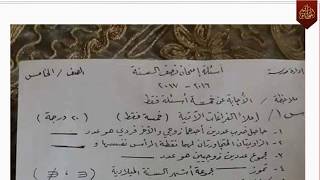 ادارة مدرسة
أسئلة إمتحان نصف السنة
الصف / الخامس
٢٠١٦ - ٢٠١٧
ملاحظة / الأجابة عن خمسة أسئلة فقط
س١/ إملأ الفراغات الآتية (خمسة فقط) (٢٠ درجة)
١- حاصل ضرب عددين أحدهما زوجي والآخر فردي هو عدد
٢- الزاويتان المتجاورتان لهما نقطة الرأس نفسها و
٣- مجموع عددين زوجيين هو عدد
٤- تموز مجموعة أشهر السنة الميلادية